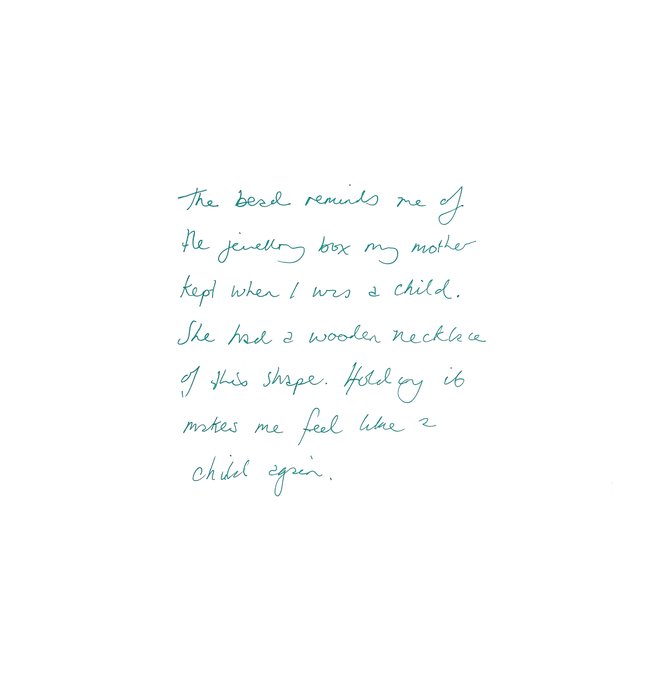 The bead reminds me of
the jewellory box my mother
kept when I was a child.
She had a wooden necklace
of this shape. Holding it
makes me feel like a
child again.